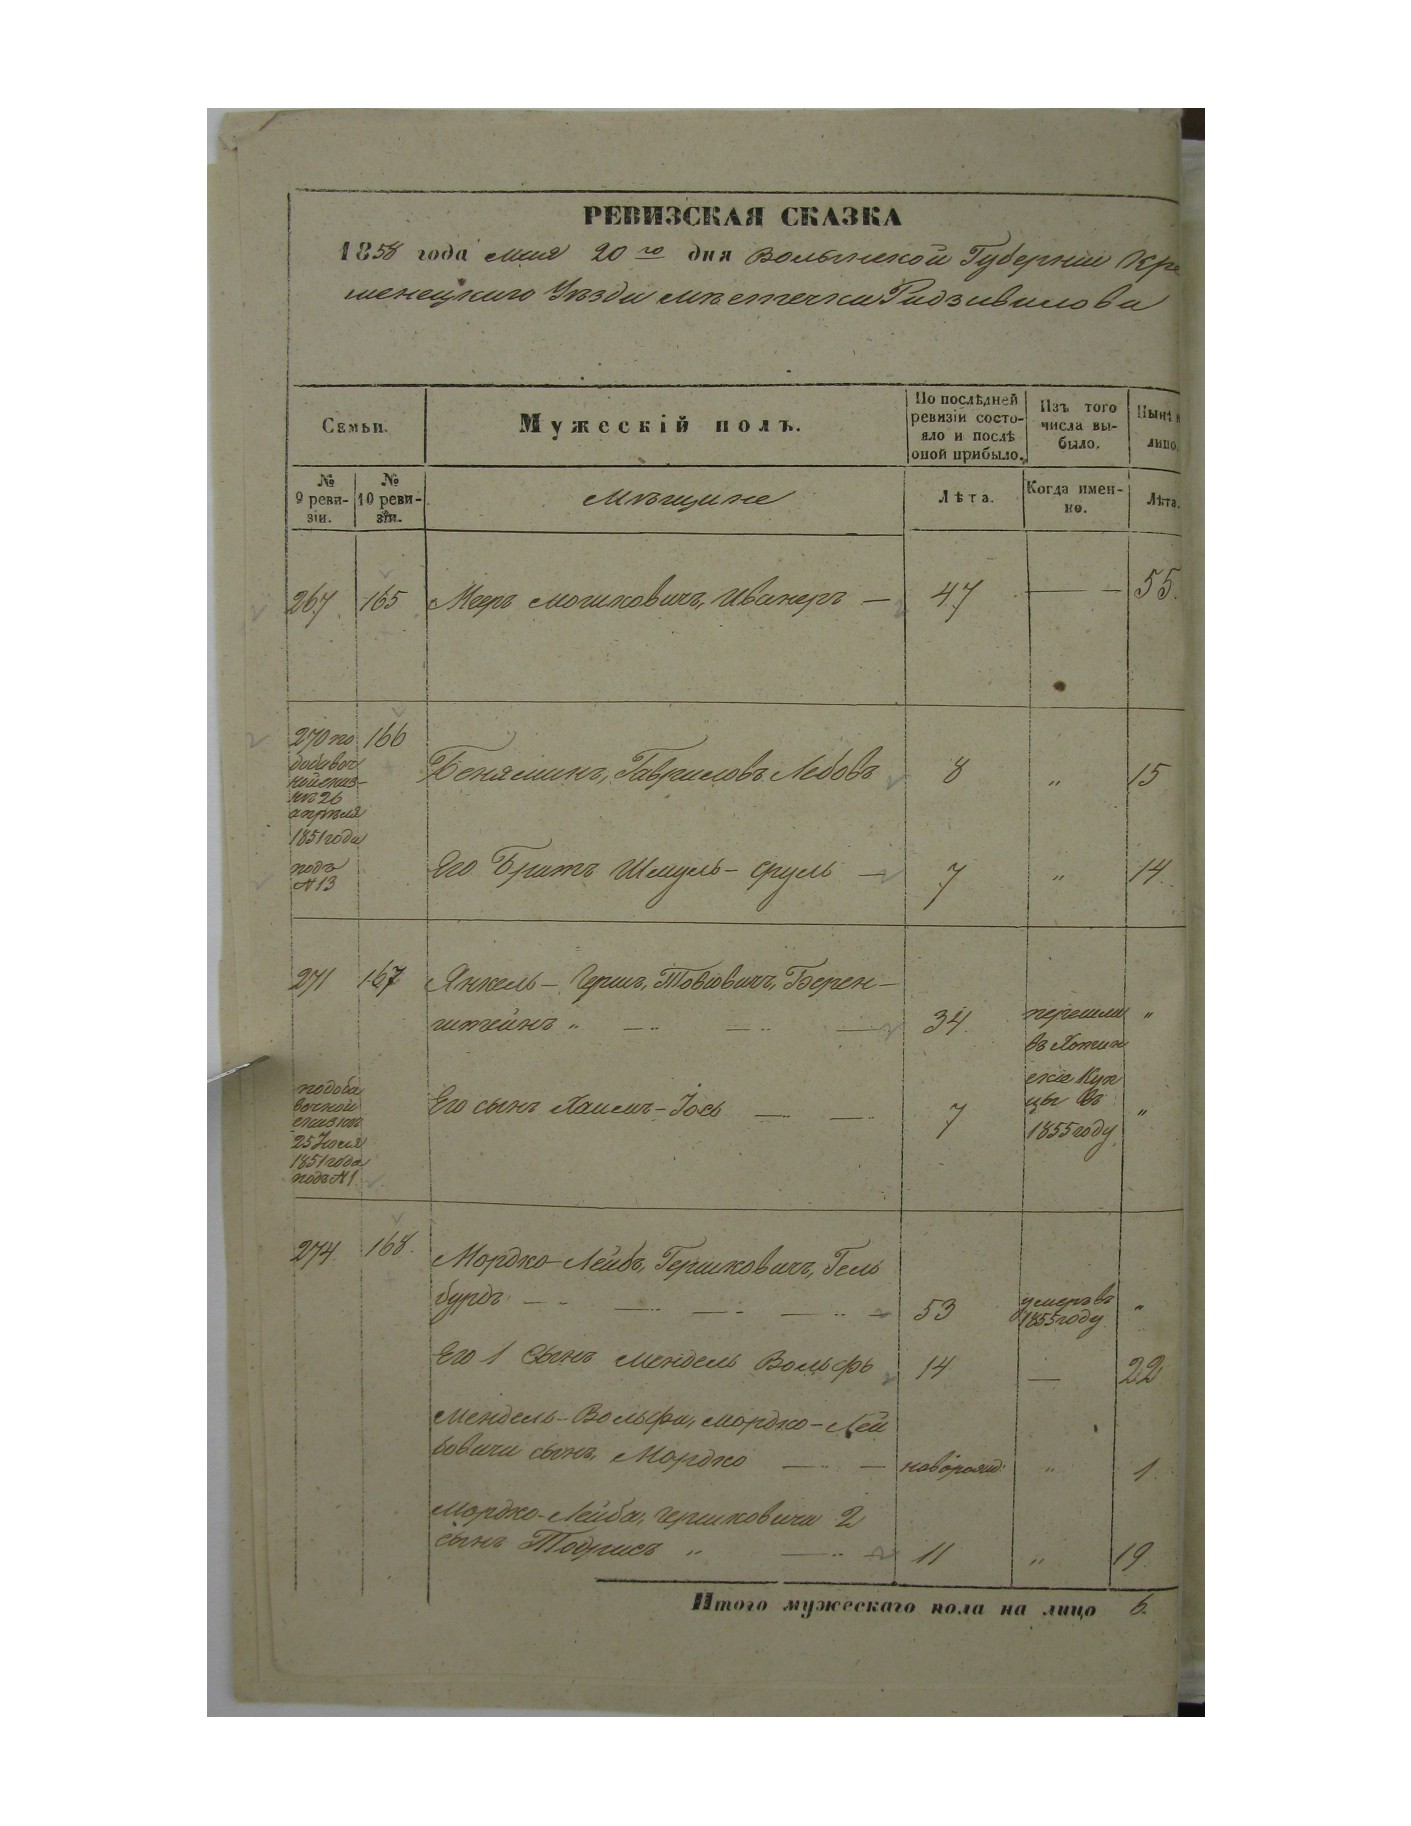 РЕВИЗСКАЯ СКАЗКА
1858 года мая 20го дня Волынской Губерніи Кре
менецкаго Уѣзда мѣстечка Радзивилова
Семьи.
Мужескій полъ.
По послѣдней ревизіи состояло и послѣ оной прибыло.
Изъ того числа выбыло.
Нынѣ
лицо.
№ 9 ревизіи.
№ 10 ревизіи.
Мѣщане
Лѣта.
Когда именно.
Лѣта.
267 165 Меер Мошковичъ, Иванеръ — 47 — — 55.
270 по 166
добавоч
ной сказ-
кѣ 26
апрѣля
1851 года
подъ
№ 13
Беняминъ, Гавриловъ Лебовъ 8 " 15
Его Братъ Шмуль - Сруль — 7 " 14.
271 167 Янкель - Герш, Товіовичъ, Берен-
штейнъ " — .. — .. — 34. перешли "
въ Хотин
скіе Куп
цы въ
1855 году
подоба
вочной
сказкѣ
25 Іюля
1851 года
подъ № 1
Его сынъ Хаимъ - Іось — .. — .. 7 "
274 168. Мордко Лейбъ, Гершковичъ, Гель
бурдъ — .. — .. — .. — .. — 53 умеръ въ "
1855 году
Его 1 Сынъ Мендель Вольфъ 14 — 22
Мендель - Вольфа, Мордко - Лей
бовича сынъ, Мордко — .. — наворожд: " 1.
Мордко - Лейба, Гершковича 2
сынъ Тодрисъ " — .. — 11 " 19.
Итого мужескаго пола на лицо 6.